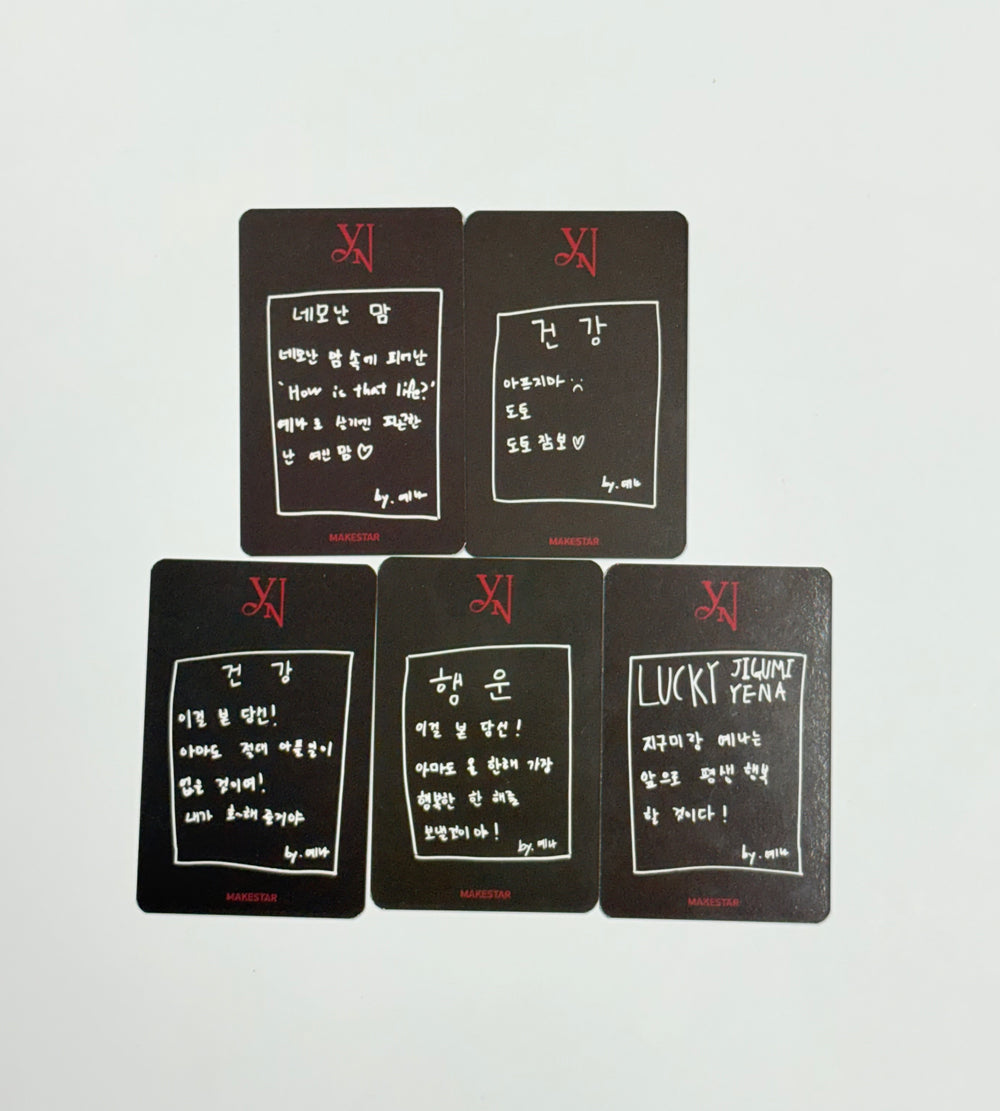 YN
네모난 맘
네모난 맘 속에 피어난
'How is that life?'
예나로 살기엔 피곤한
난 여린 맘♡
by. 예나
MAKESTAR
YN
건강
아프지마 :(
도토
도토 잠보♡
by. 예나
MAKESTAR
YN
건강
이걸 본 당신!
아마도 절대 아플일이
없을 것이여!
내가 호~해줄거야
by. 예나
MAKESTAR
YN
행운
이걸 본 당신!
아마도 올 한해 가장
행복한 한 해를
보낼것이야!
by. 예나
MAKESTAR
YN
LUCKY JIGUMI YENA
지구미랑 예나는
앞으로 평생 행복
할 것이다!
by. 예나
MAKESTAR